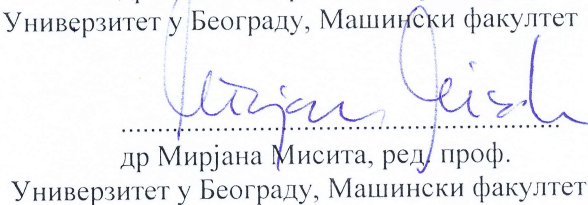 Универзитет у Београду, Машински факултет
др Мирјана Мисита, ред. проф.
Универзитет у Београду, Машински факултет